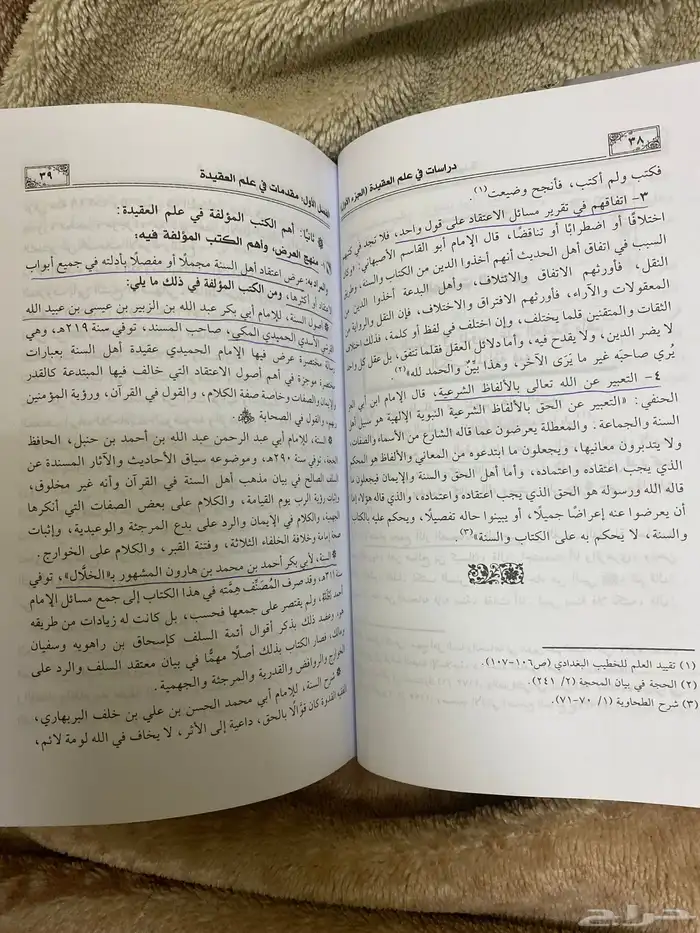 ٣٨
دراسات في علم العقيدة (الجزء الأول)
فكتب ولم أكتب، فأنجح وضيعت»(١).
٣- اتفاقهم في تقرير مسائل الاعتقاد على قول واحد، فلا تجد في كتبهم
اختلافًا أو اضطرابًا أو تناقضًا، قال الإمام أبو القاسم الأصبهاني: «وكان
السبب في اتفاق أهل الحديث أنهم أخذوا الدين من الكتاب والسنة، وطريق
النقل، فأورثهم الاتفاق والائتلاف، وأهل البدعة أخذوا الدين من
المعقولات والآراء، فأورثهم الافتراق والاختلاف، فإن النقل والرواية من
الثقات والمتقنين قلما يختلف، وإن اختلف في لفظ أو كلمة، فذلك اختلاف
لا يضر الدين، ولا يقدح فيه، وأما دلائل العقل فقلما تتفق، بل عقل كل واحد
يُري صاحبَه غير ما يَرَى الآخر، وهذا بيِّنٌ والحمد لله»(٢).
٤- التعبير عن الله تعالى بالألفاظ الشرعية، قال الإمام ابن أبي العز
الحنفي: «والتعبير عن الحق بالألفاظ الشرعية النبوية الإلهية هو سبيل أهل
السنة والجماعة. والمعطلة يعرضون عما قاله الشارع من الأسماء والصفات،
ولا يتدبرون معانيها، ويجعلون ما ابتدعوه من المعاني والألفاظ هو المحكم
الذي يجب اعتقاده واعتماده، وأما أهل الحق والسنة والإيمان فيجعلون ما
قاله الله ورسوله هو الحق الذي يجب اعتقاده واعتماده، والذي قاله هؤلاء إما
أن يعرضوا عنه إعراضًا جميلًا، أو يبينوا حاله تفصيلًا، ويحكم عليه بالكتاب
والسنة، لا يحكم به على الكتاب والسنة»(٣).
(١) تقييد العلم للخطيب البغدادي (ص١٠٦-١٠٧).
(٢) الحجة في بيان المحجة (٢/ ٢٤١).
(٣) شرح الطحاوية (١/ ٧٠-٧١).
الفصل الأول: مقدمات في علم العقيدة
٣٩
ثانيًا: أهم الكتب المؤلفة في علم العقيدة:
١- منهج العرض، وأهم الكتب المؤلفة فيه:
والمراد به: عرض اعتقاد أهل السنة مجملًا أو مفصلًا بأدلته في جميع أبواب
الاعتقاد أو أكثرها، ومن الكتب المؤلفة في ذلك ما يلي:
* أصول السنة، للإمام أبي بكر عبد الله بن الزبير بن عيسى بن عبيد الله
القرشي الأسدي الحميدي المكي، صاحب المسند، توفي سنة ٢١٩هـ، وهي
رسالة مختصرة عرض فيها الإمام الحميدي عقيدة أهل السنة بعبارات
مختصرة موجزة في أهم أصول الاعتقاد التي خالف فيها المبتدعة كالقدر
والإيمان والصفات وخاصة صفة الكلام، والقول في القرآن، ورؤية المؤمنين
ربهم، والقول في الصحابة
* السنة، للإمام أبي عبد الرحمن عبد الله بن أحمد بن حنبل، الحافظ
الحجة، توفي سنة ٢٩٠هـ، وموضوعه سياق الأحاديث والآثار المسندة عن
السلف الصالح في بيان مذهب أهل السنة في القرآن وأنه غير مخلوق،
وإثبات رؤية الرب يوم القيامة، والكلام على بعض الصفات التي أنكرها
الجهمية، والكلام في الإيمان والرد على بدع المرجئة والوعيدية، وإثبات
صحة إمامة وخلافة الخلفاء الثلاثة، وفتنة القبر، والكلام على الخوارج.
* السنة، لأبي بكر أحمد بن محمد بن هارون المشهور بـ«الخلَّال»، توفي
سنة ٣١١هـ، وقد صرف المُصَنِّف هِمَّته في هذا الكتاب إلى جمع مسائل الإمام
أحمد، ولم يقتصر على جمعها فحسب، بل كانت له زيادات من طريقه
هو، وعضد ذلك بذكر أقوال أئمة السلف كإسحاق بن راهويه وسفيان
ومالك، فصار الكتاب بذلك أصلًا مهمًّا في بيان معتقد السلف والرد على
الخوارج والروافض والقدرية والمرجئة والجهمية.
* شرح السنة، للإمام أبي محمد الحسن بن علي بن خلف البربهاري،
الفقيه القدوة كان قوَّالًا بالحق، داعية إلى الأثر، لا يخاف في الله لومة لائم،
حراج